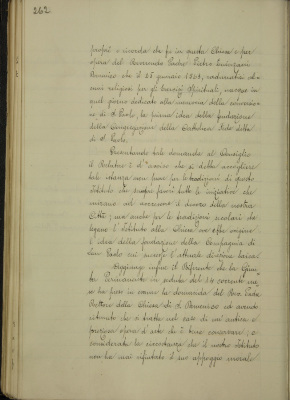 262
proprî e ricorda che fu in questa Chiesa e per
opera del Reverendo Padre
Domenico, che il 25 gennaio 1563, radunatisi al-
cuni religiosi per gli Esercizi Spirituali, nacque in
quel giorno dedicato alla memoria della conversio-
ne di S. Paolo, la prima idea della fondazione
della Congregazione della Cattolica Fede detta
di S. Paolo.
Presentando tale domanda al Consiglio
il Relatore è d'avviso che si debba accogliere
tale istanza non fosse per le tradizioni di questo
Istituto che sempre favorì tutte le iniziative che
mirano ad accrescere il decoro della nostra
Città; ma anche per le tradizioni secolari che
legano l'Istituto alla Chiesa ove ebbe origine
l'idea della fondazione della Compagnia di
San Paolo cui successe l'attuale
Aggiunge infine il Riferente che la Giun-
ta Permanente in seduta del 14 corrente me-
se ha preso in esame la domanda del Rev. Padre
Rettore della Chiesa di S. Domenico ed avendo
ritenuto che si tratta nel caso di un' antica e
preziosa opera d'arte che è bene conservare; e
considerata la circostanza che il nostro Istituto
non ha mai rifiutato il suo appoggio morale